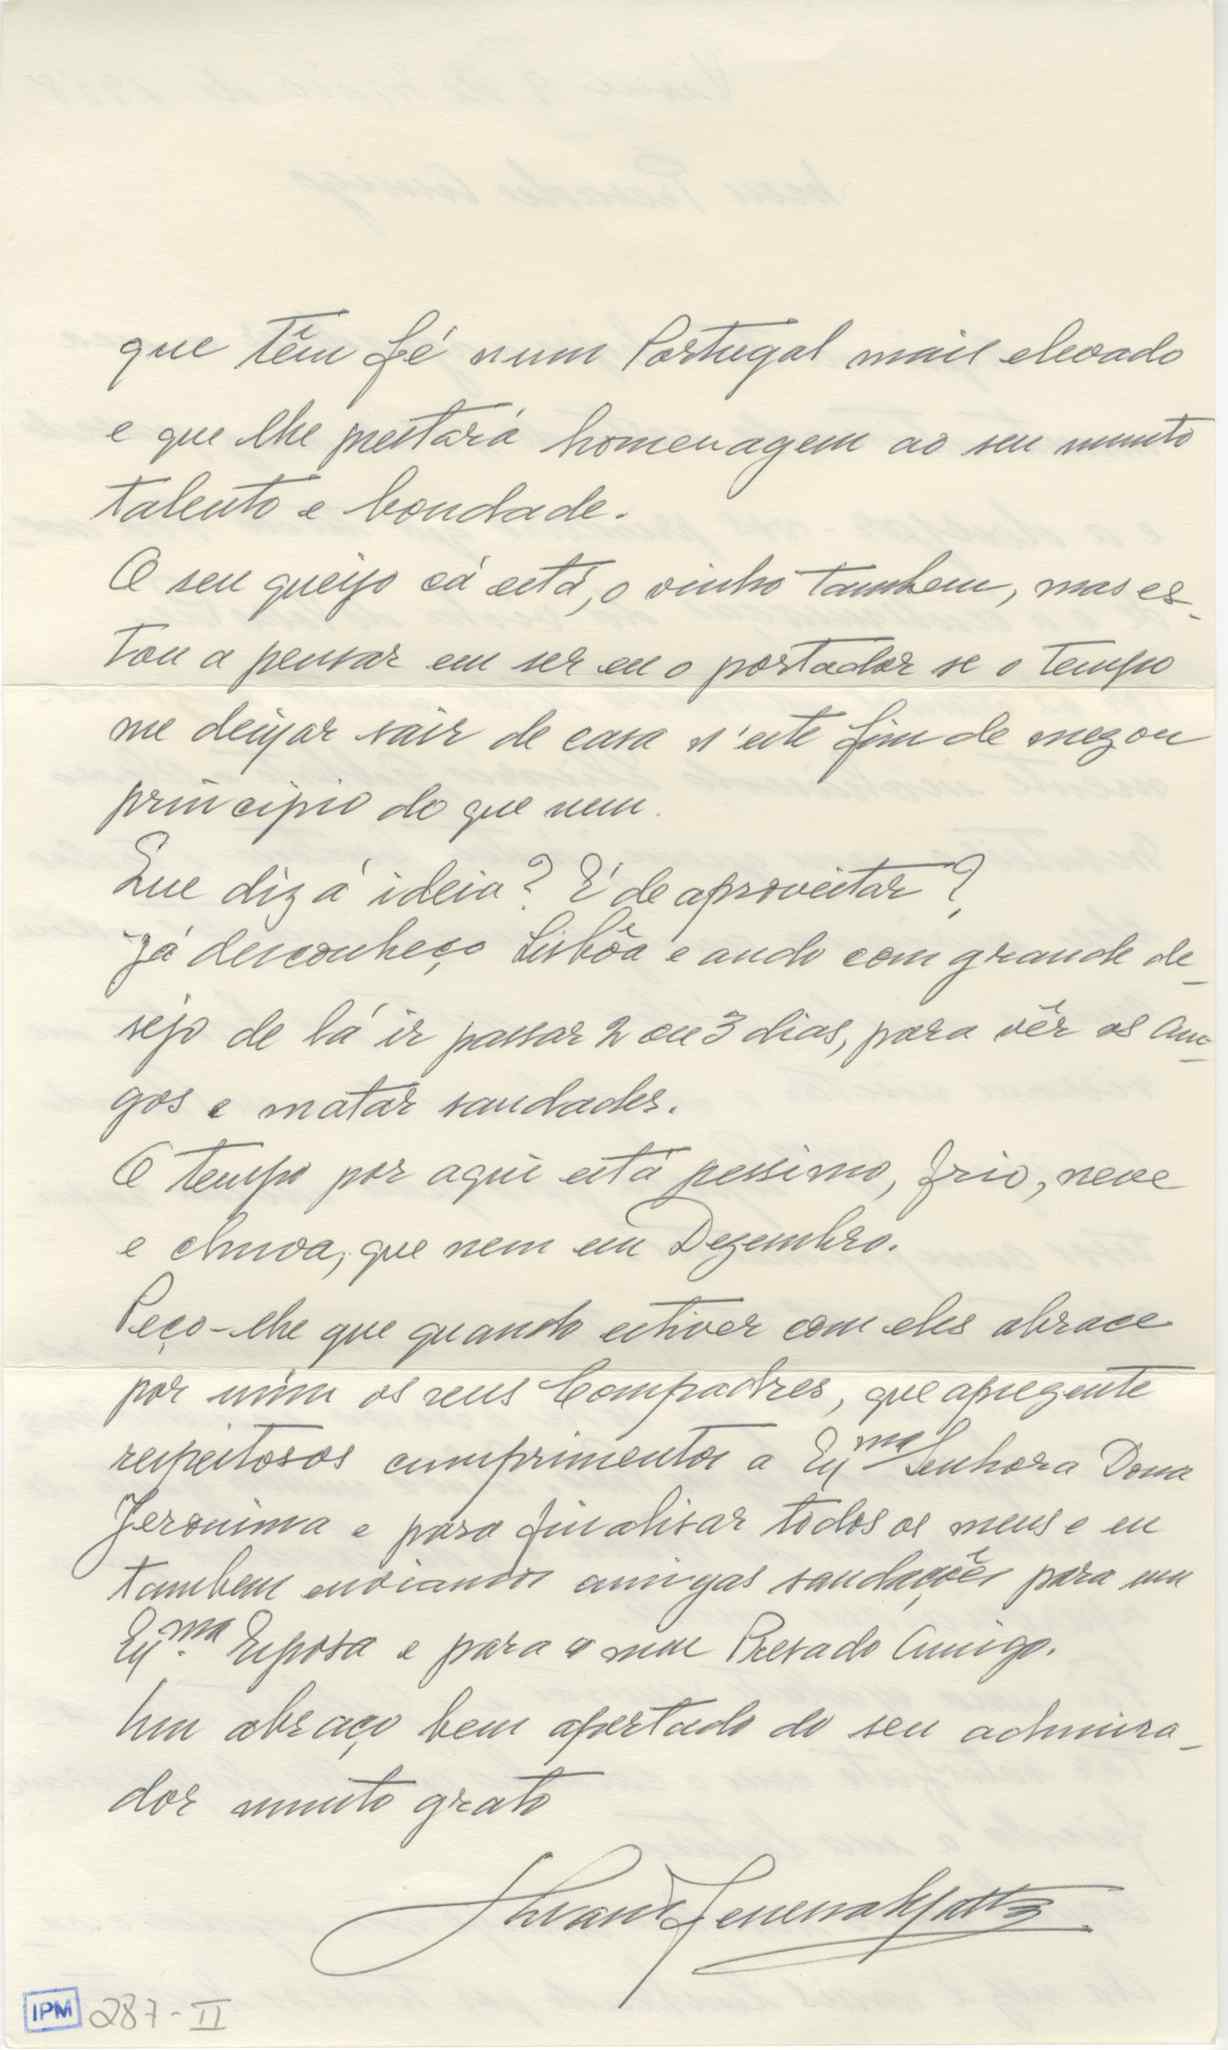 que têm fé num Portugal mais elevado
e que lhe prestará homenagem ao seu muito
talento e bondade.
O seu queijo cá está, o vinho tambem, mas es-
tou a pensar em ser eu o portador se o tempo
me deixar sair de casa n'este fim de mez ou
principio do que vem.
Que diz á ideia? É de aproveitar?
Já desconheço Lisbôa e ando com grande de-
sejo de lá ir passar 2 ou 3 dias, para vêr os ami-
gos e matar saudades.
O tempo por aqui está pessimo, frio, neve
e chuva, que nem em Dezembro.
Peço-lhe que quando estiver com eles abrace
por mim os seus Compadres, que aprezente
respeitosos cumprimentos a Exma Senhora Dona
Jeronima e para finalisar todos os meus e eu
tambem enviamos amigas saudações para sua
Exma. Esposa e para o meu Presado Amigo.
Um abraço bem apertado do seu admira-
dor muito grato
IPM 287-II